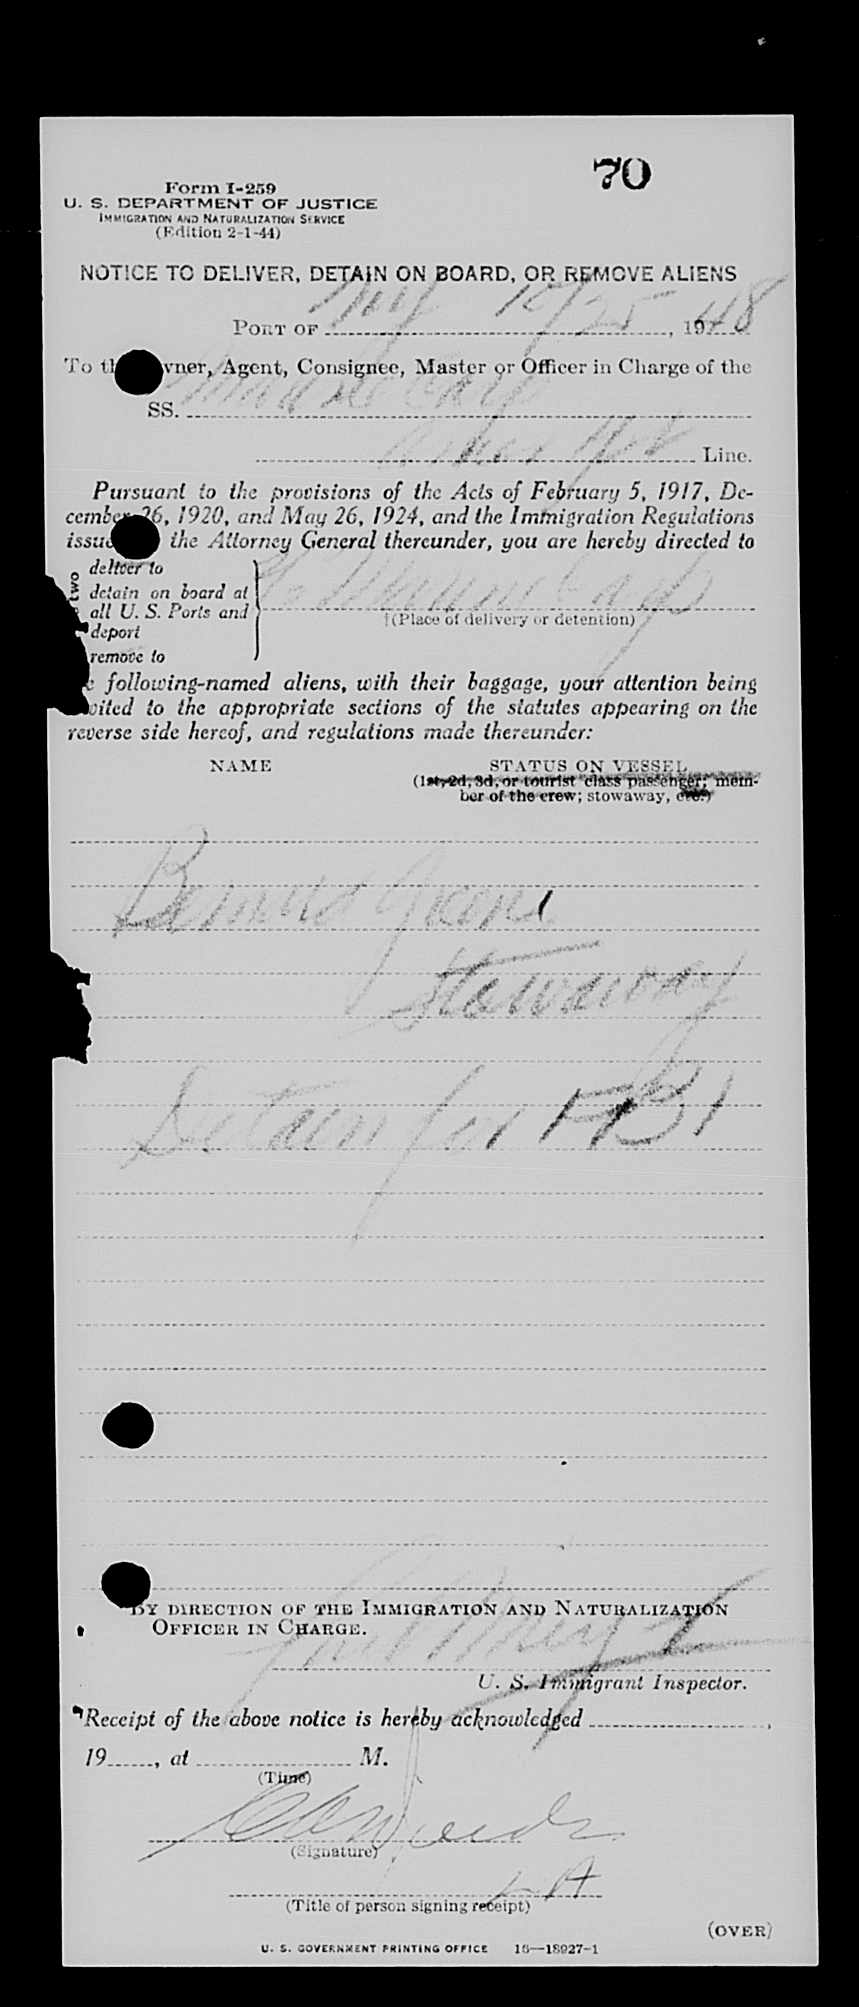 70
Form I-259
U. S. DEPARTMENT OF JUSTICE
IMMIGRATION AND NATURALIZATION SERVICE
(Edition 2-1-44)
NOTICE TO DELIVER, DETAIN ON BOARD, OR REMOVE ALIENS
PORT OF NY 10/25, 1948
To th wner, Agent, Consignee, Master or Officer in Charge of the
SS.
Line.
Pursuant to the provisions of the Acts of February 5, 1917, De-
cember 26, 1920, and May 26, 1924, and the Immigration Regulations
issue the Attorney General thereunder, you are hereby directed to
deliver to
two
detain on board at
all U. S. Ports and
(Place of delivery or detention)
deport
remove to
e following-named aliens, with their baggage, your attention being
vited to the appropriate sections of the statutes appearing on the
reverse side hereof, and regulations made thereunder:
NAME STATUS ON VESSEL
(1st, 2d, 3d, or tourist class passenger; mem-
ber of the crew; stowaway, etc.)
Bernard Greene
Stowaway
Detain for FBI
BY DIRECTION OF THE IMMIGRATION AND NATURALIZATION
OFFICER IN CHARGE.
U. S. Immigrant Inspector.
Receipt of the above notice is hereby acknowledged ,
19 , at M.
(Time)
Edwards
(Signature)
(Title of person signing receipt)
(OVER)
U. S. GOVERNMENT PRINTING OFFICE 16—18927-1